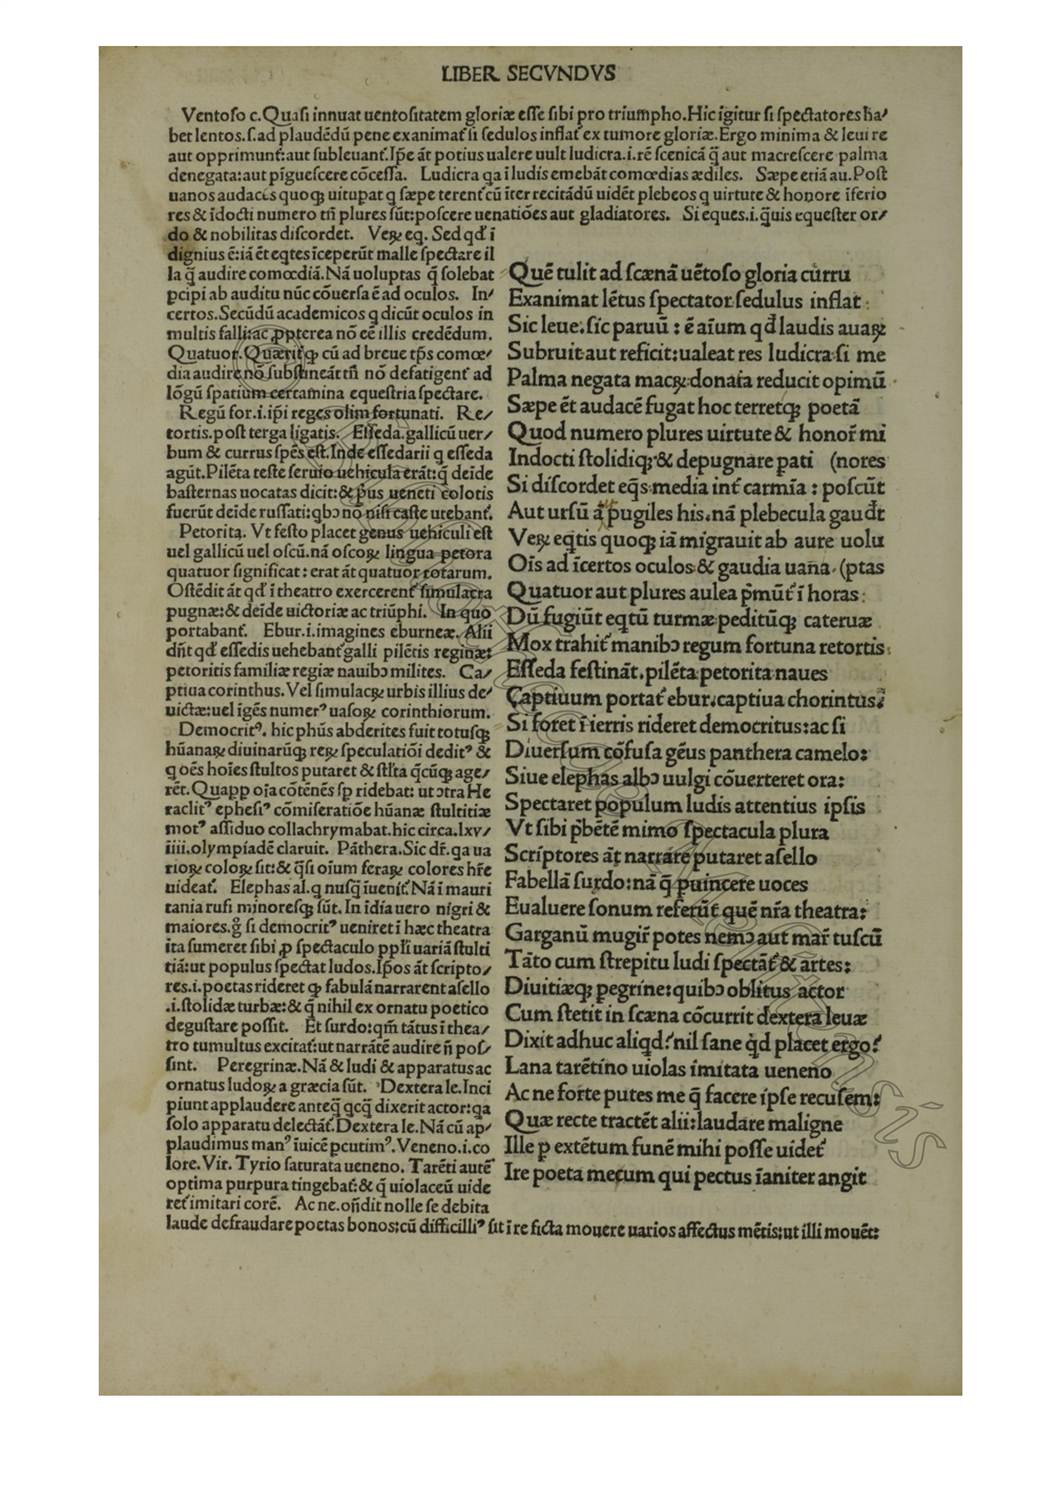 LIBER SECVNDVS
Ventoso c. Quasi innuat uentositatem gloriæ esse sibi pro triumpho. Hic igitur si spectatores ha/
bet lentos. s. ad plaudēdū pene exanimat᷑ si sedulos inflat᷑ ex tumore gloriæ. Ergo minima & leui re
aut opprimunt᷑: aut subleuant᷑. Ip̄e āt potius ualere uult ludicra. i. rē scenicā q̄ aut macrescere palma
denegata: aut pīguescere cōcessa. Ludicra qa ī ludis emebāt comœdias ædiles. Sæpe etiā au. Post
uanos audaces quoqꝫ uitupat q sæpe terent᷑ cū īter recitādū uidēt plebeos q uirtute & honore īferio
res & īdocti numero tn̄ plures sūt: poscere uenatiōes aut gladiatores. Si eques. i. q̄uis equester or/
do & nobilitas discordet. Veꝝ eq. Sed qđ ī
dignius ē: iā ēt eq̄tes īceperūt malle spectare il
la q̄ audire comœdiā. Nā uoluptas q̄ solebat
pcipi ab auditu nūc cōuersa ē ad oculos. In/
certos. Secūdū academicos q dicūt oculos in
multis falli: ac ꝓpterea nō eē illis credēdum.
Quatuor. Quærit᷑ qꝫ cū ad breue tp̄s comœ/
dia audire nō sustineāt tn̄ nō defatigent᷑ ad
lōgū spatium certamina equestria spectare.
Regū for. i. ip̄i reges olim fortunati. Re/
tortis. post terga ligatis. Esseda. gallicū uer/
bum & currus spēs est. Inde essedarii q esseda
agūt. Pilēta teste seruio uehicula erāt: q̄ deīde
basternas uocatas dicit: & p̄us ueneti colotis
fuerūt deīde russati: qbɔ nō nisi caste utebant᷑.
Petorita. Vt festo placet genus uehiculi est
uel gallicū uel oscū. nā oscoꝝ lingua petora
quatuor significat: erat āt quatuor rotarum.
Ostēdit āt qđ ī theatro exercerent᷑ simulacra
pugnæ: & deīde uictoriæ ac triūphi. In quo
portabant᷑. Ebur. i. imagines eburneæ. Alii
dn̄t qđ essedis uehebant᷑ galli pilētis reginæ:
petoritis familiæ regiæ nauibɔ milites. Ca/
ptiua corinthus. Vel simulacꝝ urbis illius de/
uictæ: uel īgēs numerꝰ uasoꝝ corinthiorum.
Democritꝰ. hic phūs abderites fuit totusqꝫ
hūanaꝝ diuinarūqꝫ reꝝ speculatiōi deditꝰ &
q oēs hoīes stultos putaret & stl̄ta q̄cūqꝫ age/
rēt. Quapp oīa cōtēnēs sp ridebat: ut ɔtra He
raclitꝰ ephesiꝰ cōmiseratiōe hūanæ stultitiæ
motꝰ assiduo collachrymabat. hic circa. lxv/
iiii. olympiadē claruit. Pāthera. Sic dr̄. qa ua
rioꝝ coloꝝ sit: & q̄si oīum feraꝝ colores hr̄e
uideat᷑. Elephas al. q nusq̄ īuenit᷑. Nā ī mauri
tania rufi minoresqꝫ sūt. In īdia uero nigri &
maiores. g̊ si democritꝰ ueniret ī hæc theatra
ita sumeret sibi ꝓ spectaculo ppl̄i uariā stulti
tiā: ut populus spectat ludos. Ip̄os āt scripto/
res. i. poetas rideret qꝫ fabulā narrarent asello
. i. stolidæ turbæ: & q̄ nihil ex ornatu poetico
degustare possit. Et surdo: qm̄ tātus ī thea/
tro tumultus excitat᷑: ut narrātē audire n̄ pos/
sint. Peregrinæ. Nā & ludi & apparatus ac
ornatus ludoꝝ a græcia sūt. Dextera le. Inci
piunt applaudere anteq̄ qcq̄ dixerit actor: qa
solo apparatu delectāt᷑. Dextera le. Nā cū ap/
plaudimus manꝰ īuicē pcutimꝰ. Veneno. i. co
lore. Vir. Tyrio saturata ueneno. Tarēti autē
optima purpura tingebat᷑: & q̄ uiolaceū uide
ret᷑ imitari corē. Ac ne. on̄dit nolle se debita
laude defraudare poetas bonos: cū difficilliꝰ sit ī re ficta mouere uarios affectus mētis: ut illi mouēt:
Quē tulit ad scænā uētoso gloria curru
Exanimat lētus spectator sedulus inflat:
Sic leue, sic paruū: ē aīum qđ laudis auaꝝ
Subruit aut reficit: ualeat res ludicra si me
Palma negata macꝝ donata reducit opimū.
Sæpe ēt audacē fugat hoc terretqꝫ poetā
Quod numero plures uirtute & honor᷑ mi
Indocti stolidiqꝫ & depugnare pati (nores
Si discordet eq̄s media int᷑ carmīa: poscūt
Aut ursū āt pugiles his. nā plebecula gaudꝫt
Veꝝ eq̄tis quoqꝫ iā migrauit ab aure uolu
Oīs ad īcertos oculos & gaudia uana. (ptas
Quatuor aut plures aulea p̄mūt᷑ ī horas:
Dū fugiūt eqtū turmæ peditūqꝫ cateruæ
Mox trahit᷑ manibɔ regum fortuna retortis:
Esseda festināt, pilēta petorita naues
Captiuum portat᷑ ebur, captiua chorintus:
Si foret ī ierris rideret democritus: ac si
Diuersum cōfusa gēus panthera camelo:
Siue elephas albɔ uulgi cōuerteret ora:
Spectaret populum ludis attentius ipsis
Vt sibi p̄bētē mimo spectacula plura
Scriptores āt narrare putaret asello
Fabellā surdo: nā q̄ puincere uoces
Eualuere sonum referūt quē nr̄a theatra:
Garganū mugir᷑ potes nemɔ aut mar᷑ tuscū
Tāto cum strepitu ludi spectāt᷑ & artes:
Diuitiæqꝫ pegrine: quibɔ oblitus actor
Cum stetit in scæna cōcurrit dextera leuæ
Dixit adhuc aliqđ? nil sane q̇d placet ergo?
Lana tarētino uiolas imitata ueneno
Ac ne forte putes me q̄ facere ipse recusem:
Quæ recte tractēt alii: laudare maligne
Ille p extētum funē mihi posse uidet᷑
Ire poeta meum qui pectus īaniter angit